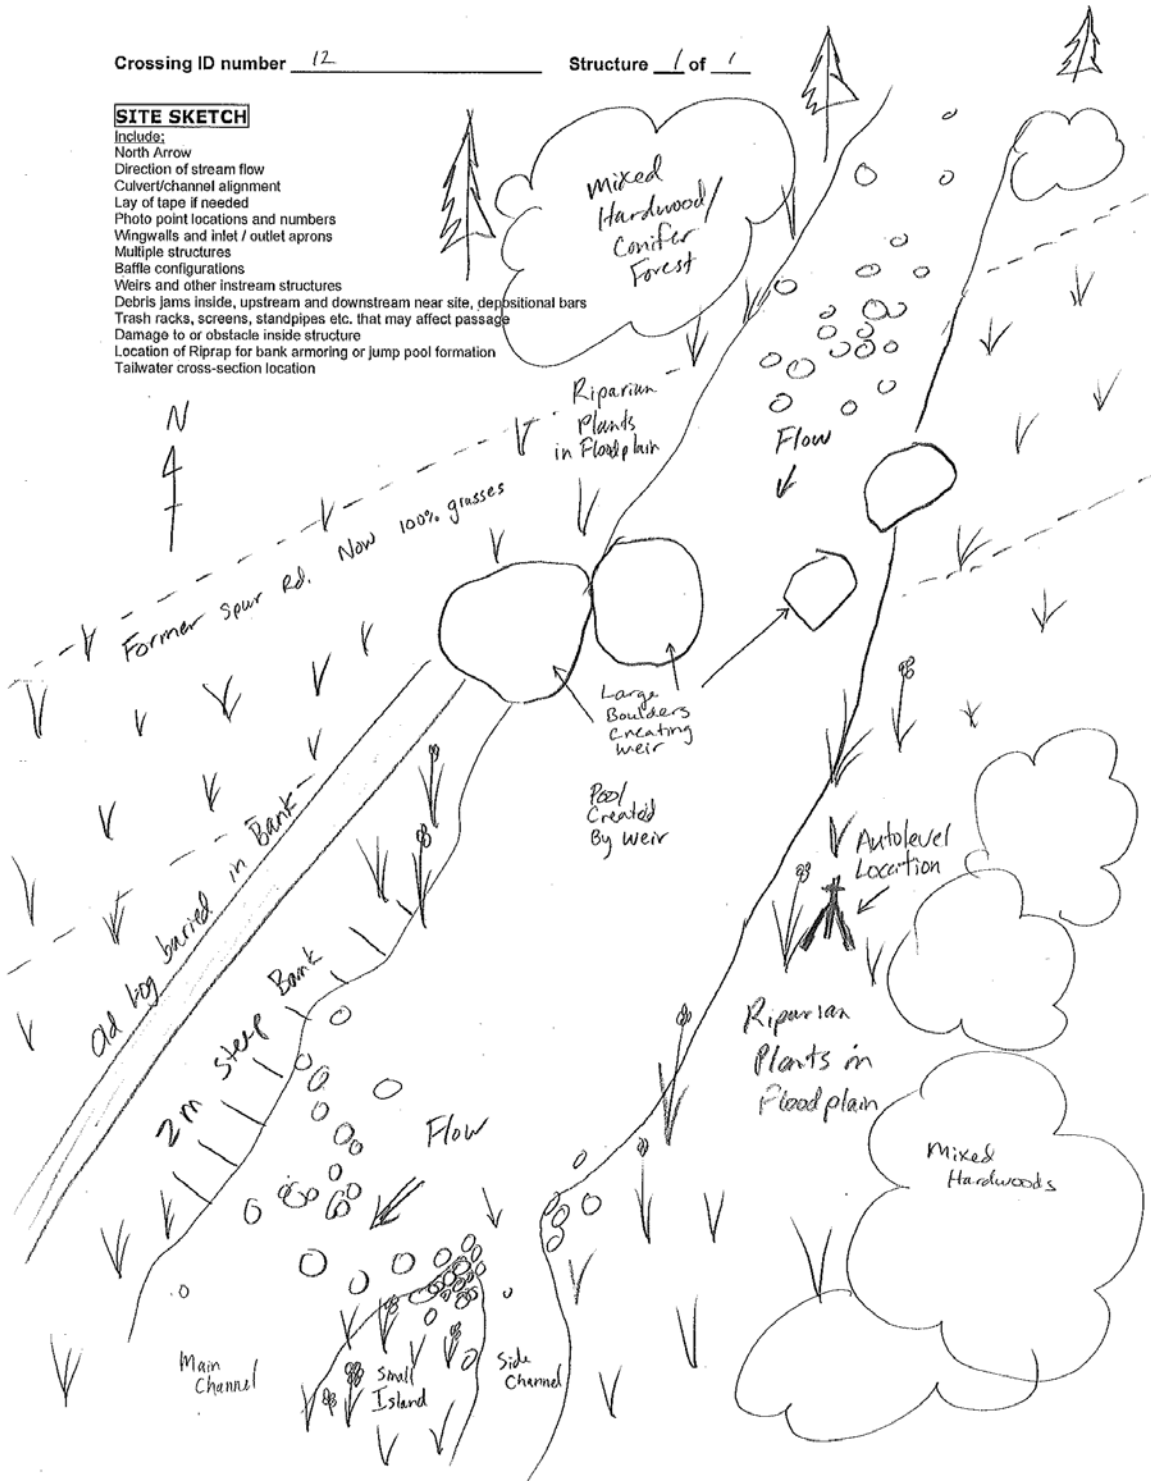 Crossing ID number 12 Structure 1 of 1
SITE SKETCH
Include:
North Arrow
Direction of stream flow
Culvert/channel alignment
Lay of tape if needed
Photo point locations and numbers
Wingwalls and inlet / outlet aprons
Multiple structures
Baffle configurations
Weirs and other instream structures
Debris jams inside, upstream and downstream near site, depositional bars
Trash racks, screens, standpipes etc. that may affect passage
Damage to or obstacle inside structure
Location of Riprap for bank armoring or jump pool formation
Tailwater cross-section location
Mixed
Hardwood/
Conifer
Forest
N
Riparian
Plants
in Floodplain
Flow
Former Spur Rd. Now 100% grasses
Large
Boulders
Creating
Weir
Pool
Created
By Weir
Autolevel
Location
Old Log buried in Bank
2m Steep Bank
Riparian
Plants in
Floodplain
Flow
Mixed
Hardwoods
Main
Channel
Small
Island
Side
Channel